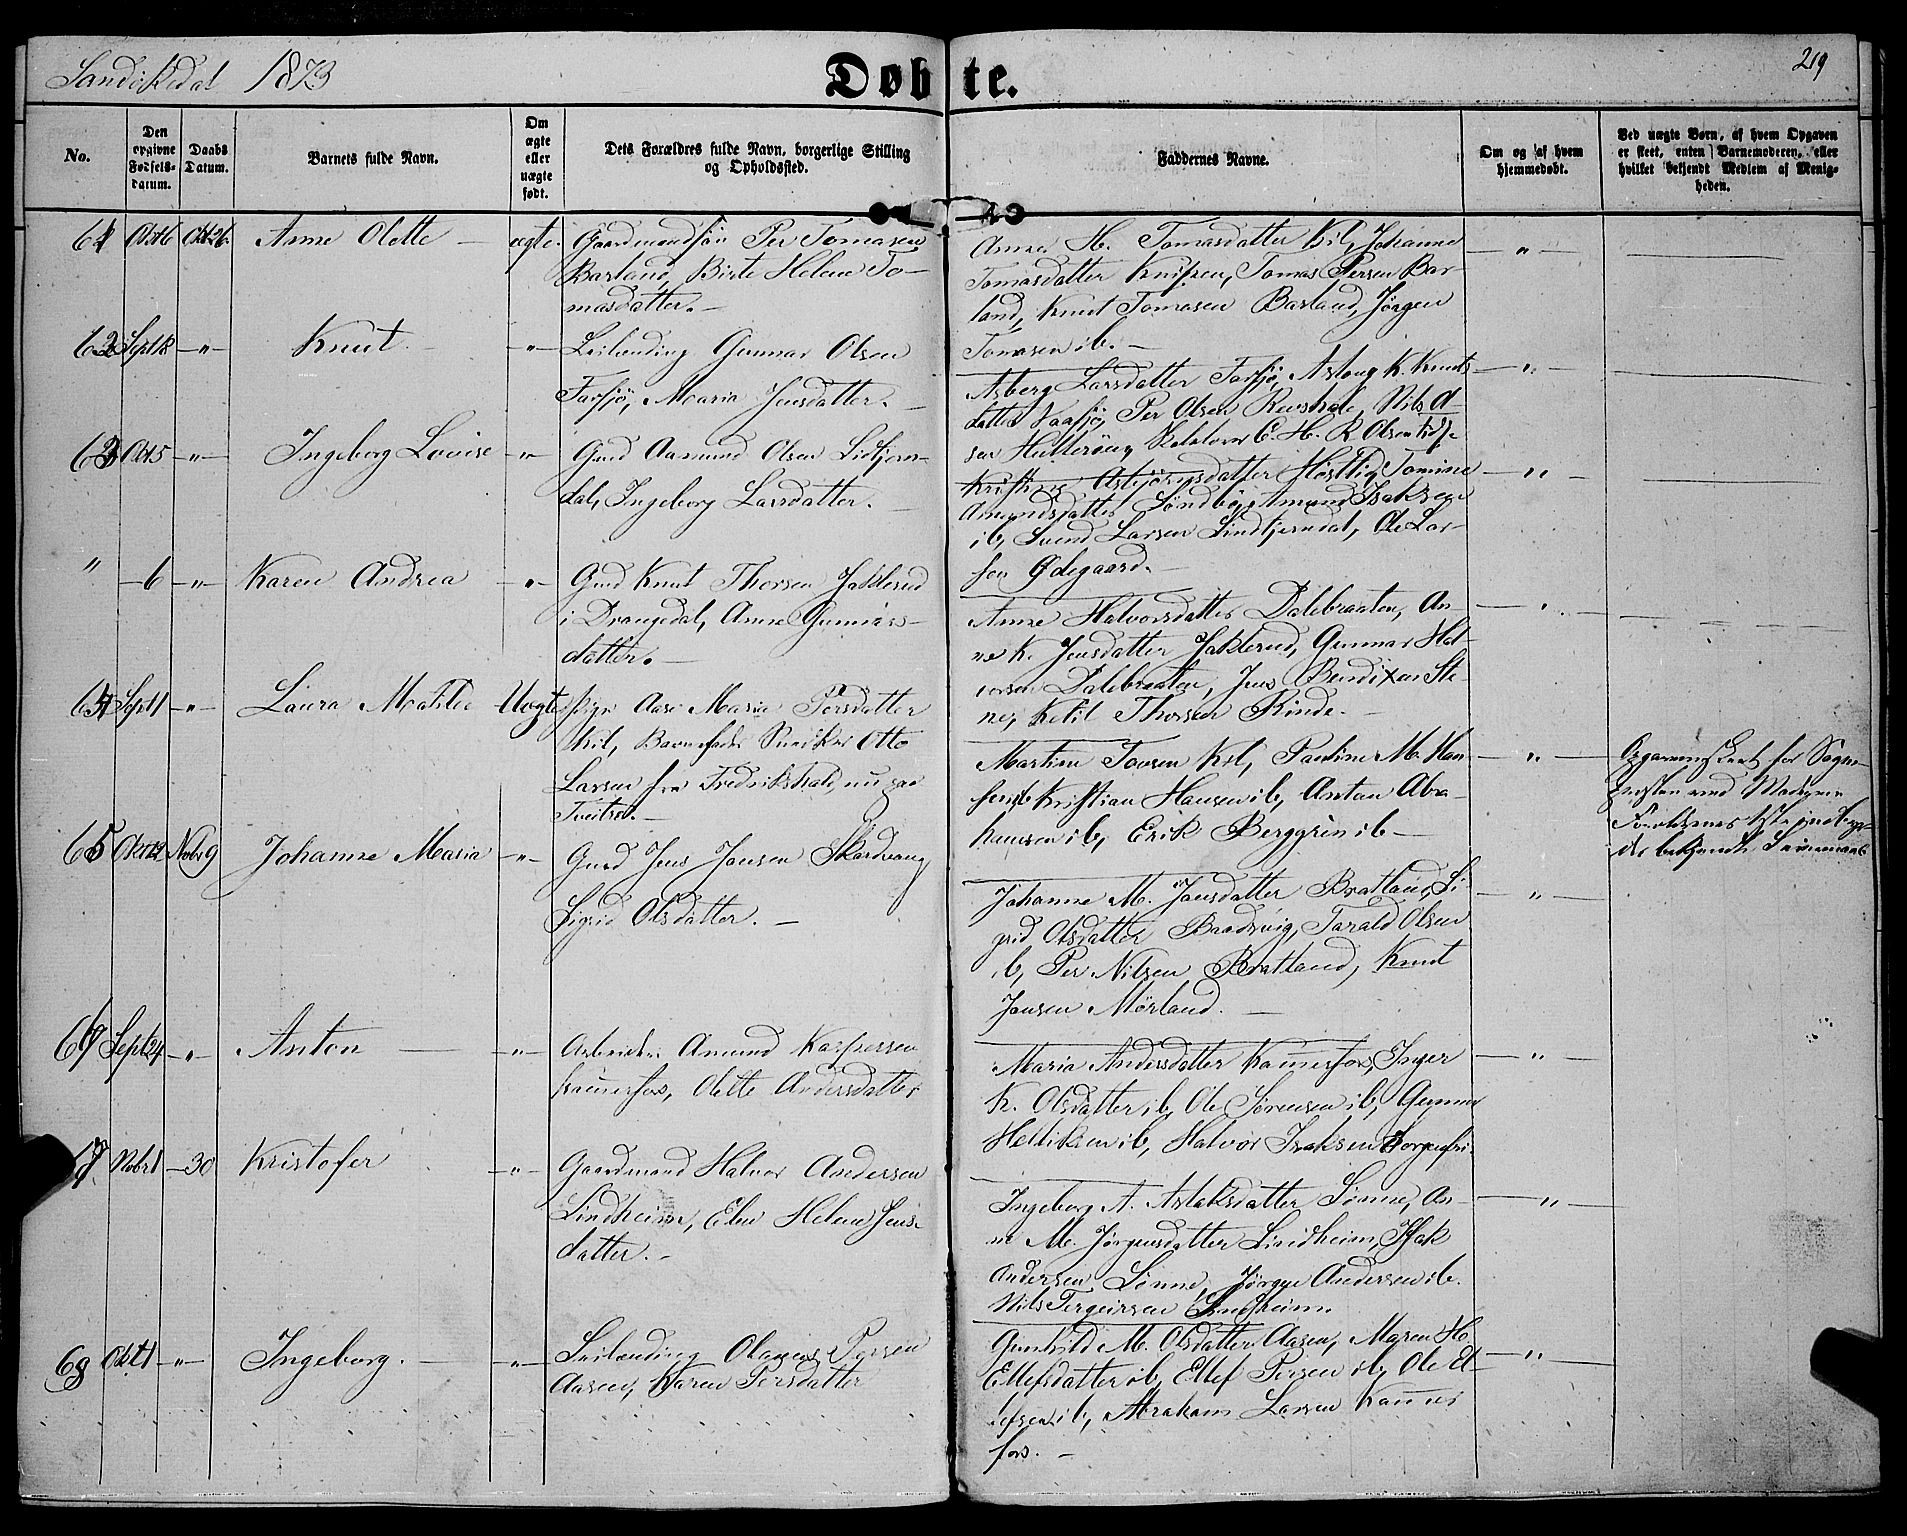 Sandøkedal 1873
Døbte.
219
No.
Den opgivne Fødsels-datum.
Daabs Datum.
Barnets fulde Navn.
Om ægte eller uægte født.
Dets Forældres fulde Navn, borgerlige Stilling og Opholdssted.
Faddernes Navne.
Om og af hvem hjemmedøbt.
Ved uægte Børn, af hvem Opgaven er skeet, enten Barnemoderen, eller hvilket bekjendt Medlem af Menigheden.
61 Okt 6 Okt 26 Anne Olette — ægte.
Gaardmandssøn Per Tomasen
Barland, Birte Helene To-
masdatter. —
Anne H. Tomasdatter Kil, Johanne
Tomasdatter Knipen, Tomas Persen Bar-
land, Knut Tomasen Barland, Jørgen
Tomasen ib. —
62 Sept 18 — " — Knut — " —
Leilænding Gunnar Olsen
Farsjø, Maria Jensdatter. —
Asberg Larsdatter Farsjø, Aslaug K. Knuts-
datter Vaasjø, Per Olsen Nils
sen Hulterøen, E. H. R. Olsen
63 Okt 5 — " — Ingeborg Lovise — " —
Gmd Aamund Olsen Lidtjern-
dal, Ingeborg Larsdatter. —
Kristine Asbjørnsdatter Høstlid, Tomine
Amundsdatter Søndbø, Amund Isaksen
ib, Svend Larsen Lindtjerndal, Ole Lar-
sen Ødegaard. —
" — 6 — " — Karen Andrea — " —
Gmd Knut Thorsen Jakterud
i Drangedal, Anne Gunnars-
datter. —
Anne Halvorsdatter Dalebraaten, An-
ne K. Jensdatter Jakterud, Gunnar Hal-
vorsen Dalebraaten, Jens Bendixen Ste-
ne, Ketil Thorsen Rinde. —
64 Sept 1 — " — Laura Matilde Uægte
Pige Aase Maria Persdatter
Kil, Barnefader Snedker Otto
Larsen fra Fredrikshald, nu paa
Tveitse. —
Martine Tovsen Kil, Pauline M. Han-
sen ib, Kristian Hansen ib, Anton Abra-
hamsen ib, Erik Berggrén ib —
Opgaven skeet for Sogne-
presten med
bekjendt
65 Okt 12 Nobr 9 Johanne Maria — " —
Gmd Jens Jensen Skardvang,
Sigrid Olsdatter. —
Johanne M. Jensdatter Bratland, Si-
grid Olsdatter Baadsvig, Tarald Olsen
ib, Per Nilsen Bratland, Knut
Jensen Mørland. —
66 Sept 24 — " — Anton — " —
Arbeider Amund Kaspersen
Kammerfos, Olette Andersdatter
Maria Andersdatter Kammerfos, Inger
K. Olsdatter ib, Ole Sørensen ib, Gunnar
Helliksen ib, Halvor Isaksen Sorgenfri.
67 Nobr 1 — 30 Kristofer — " —
Gaardmand Halvor Andersen
Lindheim, Elen Helene Jens-
datter. —
Ingeborg A. Aslaksdatter Sønne, An-
ne M. Jørgensdatter Lindheim, Isak
Andersen Sønne, Jørgen Andersen ib.
Nils Tergeirsen Lindheim.
68 Okt 1 — " — Ingeborg. — " —
Leilænding Olaus Persen
Aasen, Karen Persdatter
Gunhild M. Olsdatter Aasen, Maren H.
Ellefsdatter ib, Ellef Persen ib, Ole El-
lefsen ib, Abraham Larsen Kammer-
fos. —